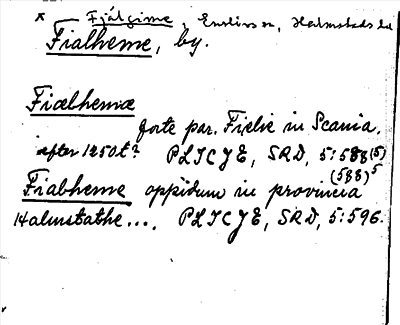 * Fjälgime, Enslöv sn, Halmstads hd
Fialheme, by.
Fiælhemæ
forte par. Fielie in Scania.
after 1250t? PLTCJE, SRD, 5:588(5)
(588)5
Fiabheme oppidum in provincia
Halmstathe... PLTCJE, SRD, 5:596.